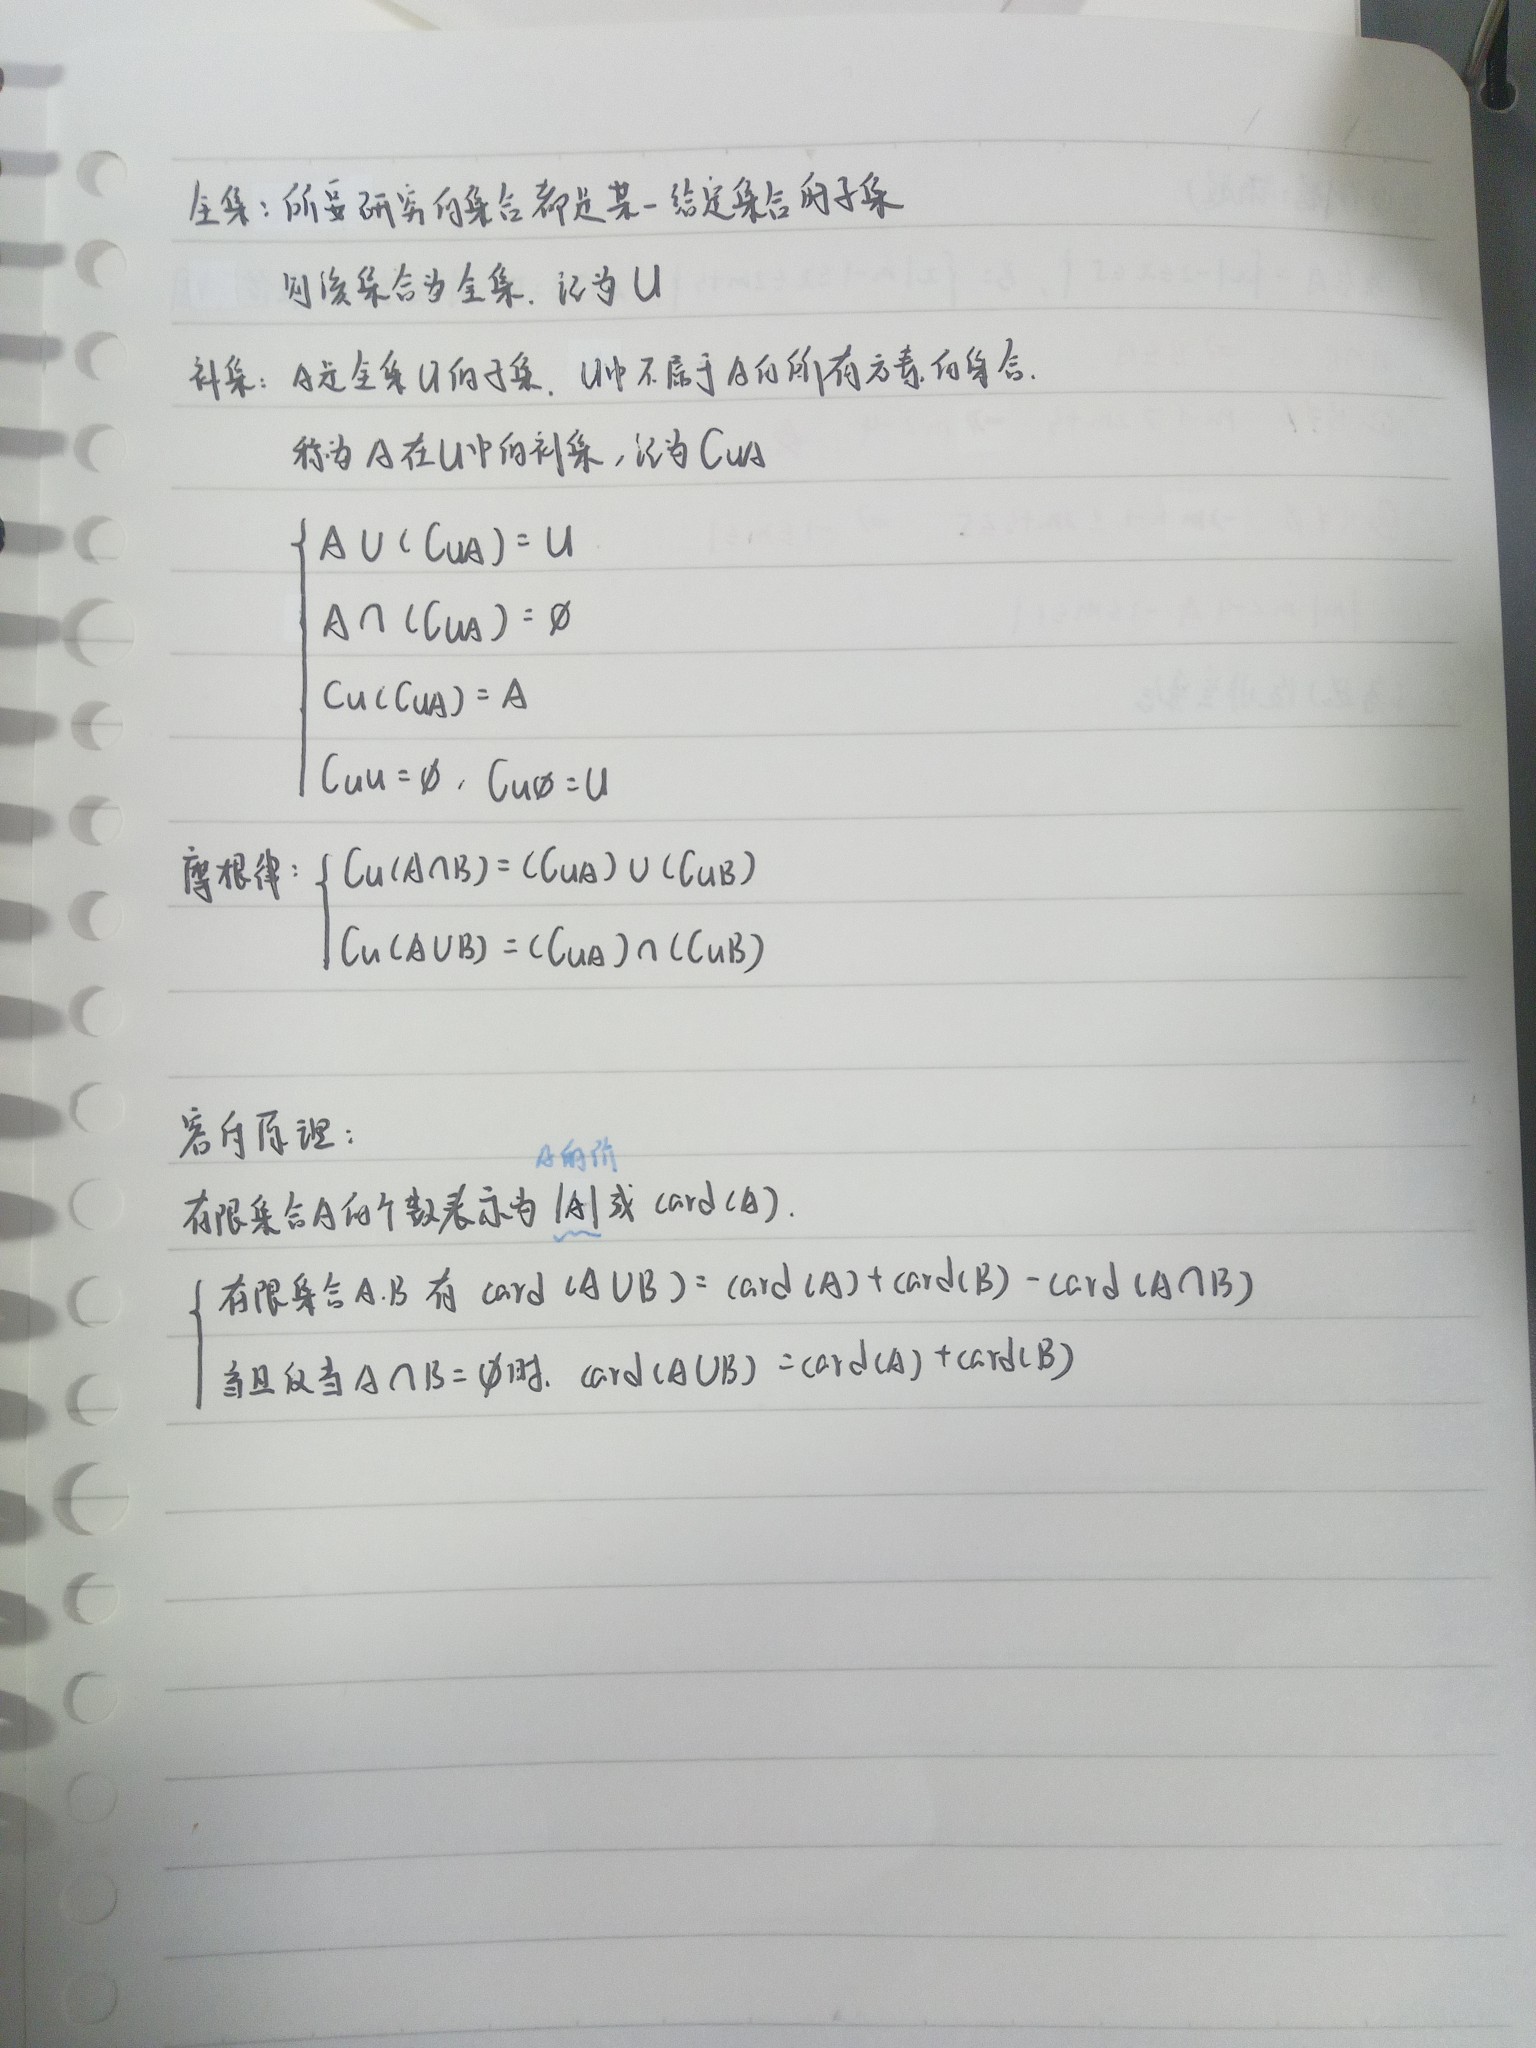 全集：所要研究的集合都是某一给定集合的子集
则该集合为全集. 记为U
补集：A是全集U的子集. U中不属于A的所有元素的集合.
称为A在U中的补集，记为CuA
A∪(CuA)=U
A∩(CuA)=∅
Cu(CuA)=A
Cuu=∅. Cu∅=U
摩根律：Cu(A∩B)=(CuA)∪(CuB)
Cu(A∪B)=(CuA)∩(CuB)
容斥原理：
A的阶
有限集合A的个数表示为|A|或card(A).
有限集合A.B有card(A∪B)=card(A)+card(B)-card(A∩B)
当且仅当A∩B=∅时. card(A∪B)=card(A)+card(B)